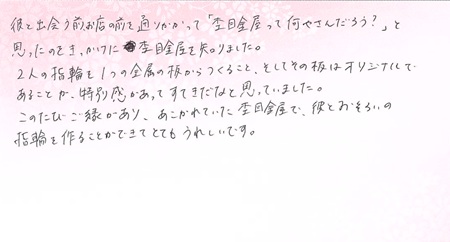 彼と出会う前、お店の前を通りかかって「杢目金屋って何やさんだろう?」と
思ったのをきっかけに杢目金屋を知りました。
2人の指輪を1つの金属の板からつくること、そしてその板はオリジナルで
あることが、特別感があってすてきだなと思っていました。
このたびご縁があり、あこがれていた杢目金屋で、彼とおそろいの
指輪を作ることができてとてもうれしいです。